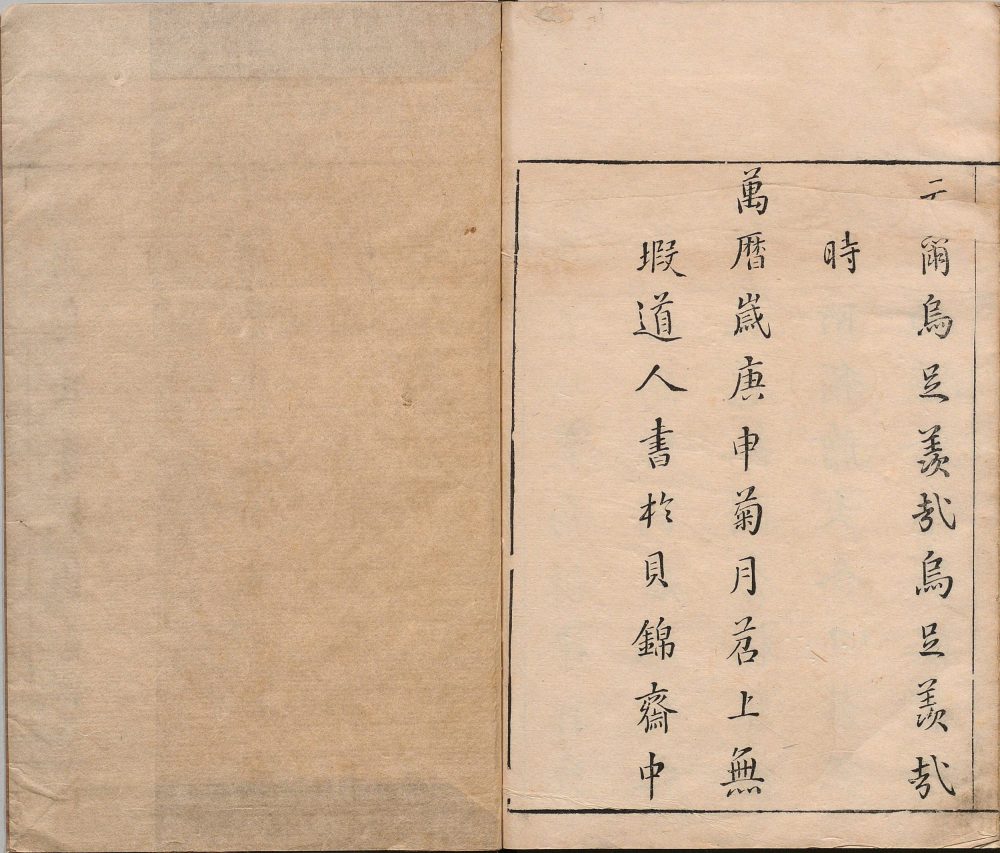 爾烏足羨哉烏足羨哉
時
萬曆歲庚申菊月苕上無
瑕道人書於貝錦齋中